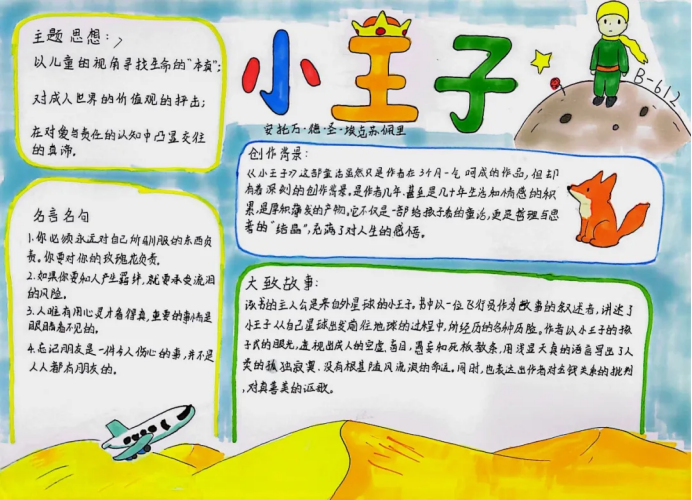 小王子
安托万·德·圣·埃克苏佩里
B-612
主题思想：
以儿童的视角寻找生命的“本真”；
对成人世界的价值观的抨击；
在对爱与责任的认知中凸显交往
的真谛。
创作背景：
《小王子》这部童话虽然只是作者在3个月一气呵成的作品，但却
有着深刻的创作背景。是作者几年，甚至是几十年生活和情感的积
累，是厚积薄发的产物。它不仅是一部给孩子看的童话，更是哲理与思
考的“结晶”，充满了对人生的感悟。
名言名句
1.你必须永远对自己所驯服的东西负
责。你要对你的玫瑰花负责。
2.如果你要和人产生羁绊，就要承受流泪
的风险。
3.人唯有用心灵才看得真，重要的事情是
眼睛看不见的。
4.忘记朋友是一件令人伤心的事，并不是
人人都有朋友的。
大致故事：
该书的主人公是来自外星球的小王子。书中以一位飞行员作为故事的叙述者，讲述了
小王子从自己星球出发前往地球的过程中，所经历的各种历险。作者以小王子的孩
子式的眼光，透视出成人的空虚、盲目，愚妄和死板教条，用浅显天真的语言写出了人
类的孤独寂寞、没有根基随风流浪的命运。同时，也表达出作者对金钱关系的批判
，对真善美的讴歌。